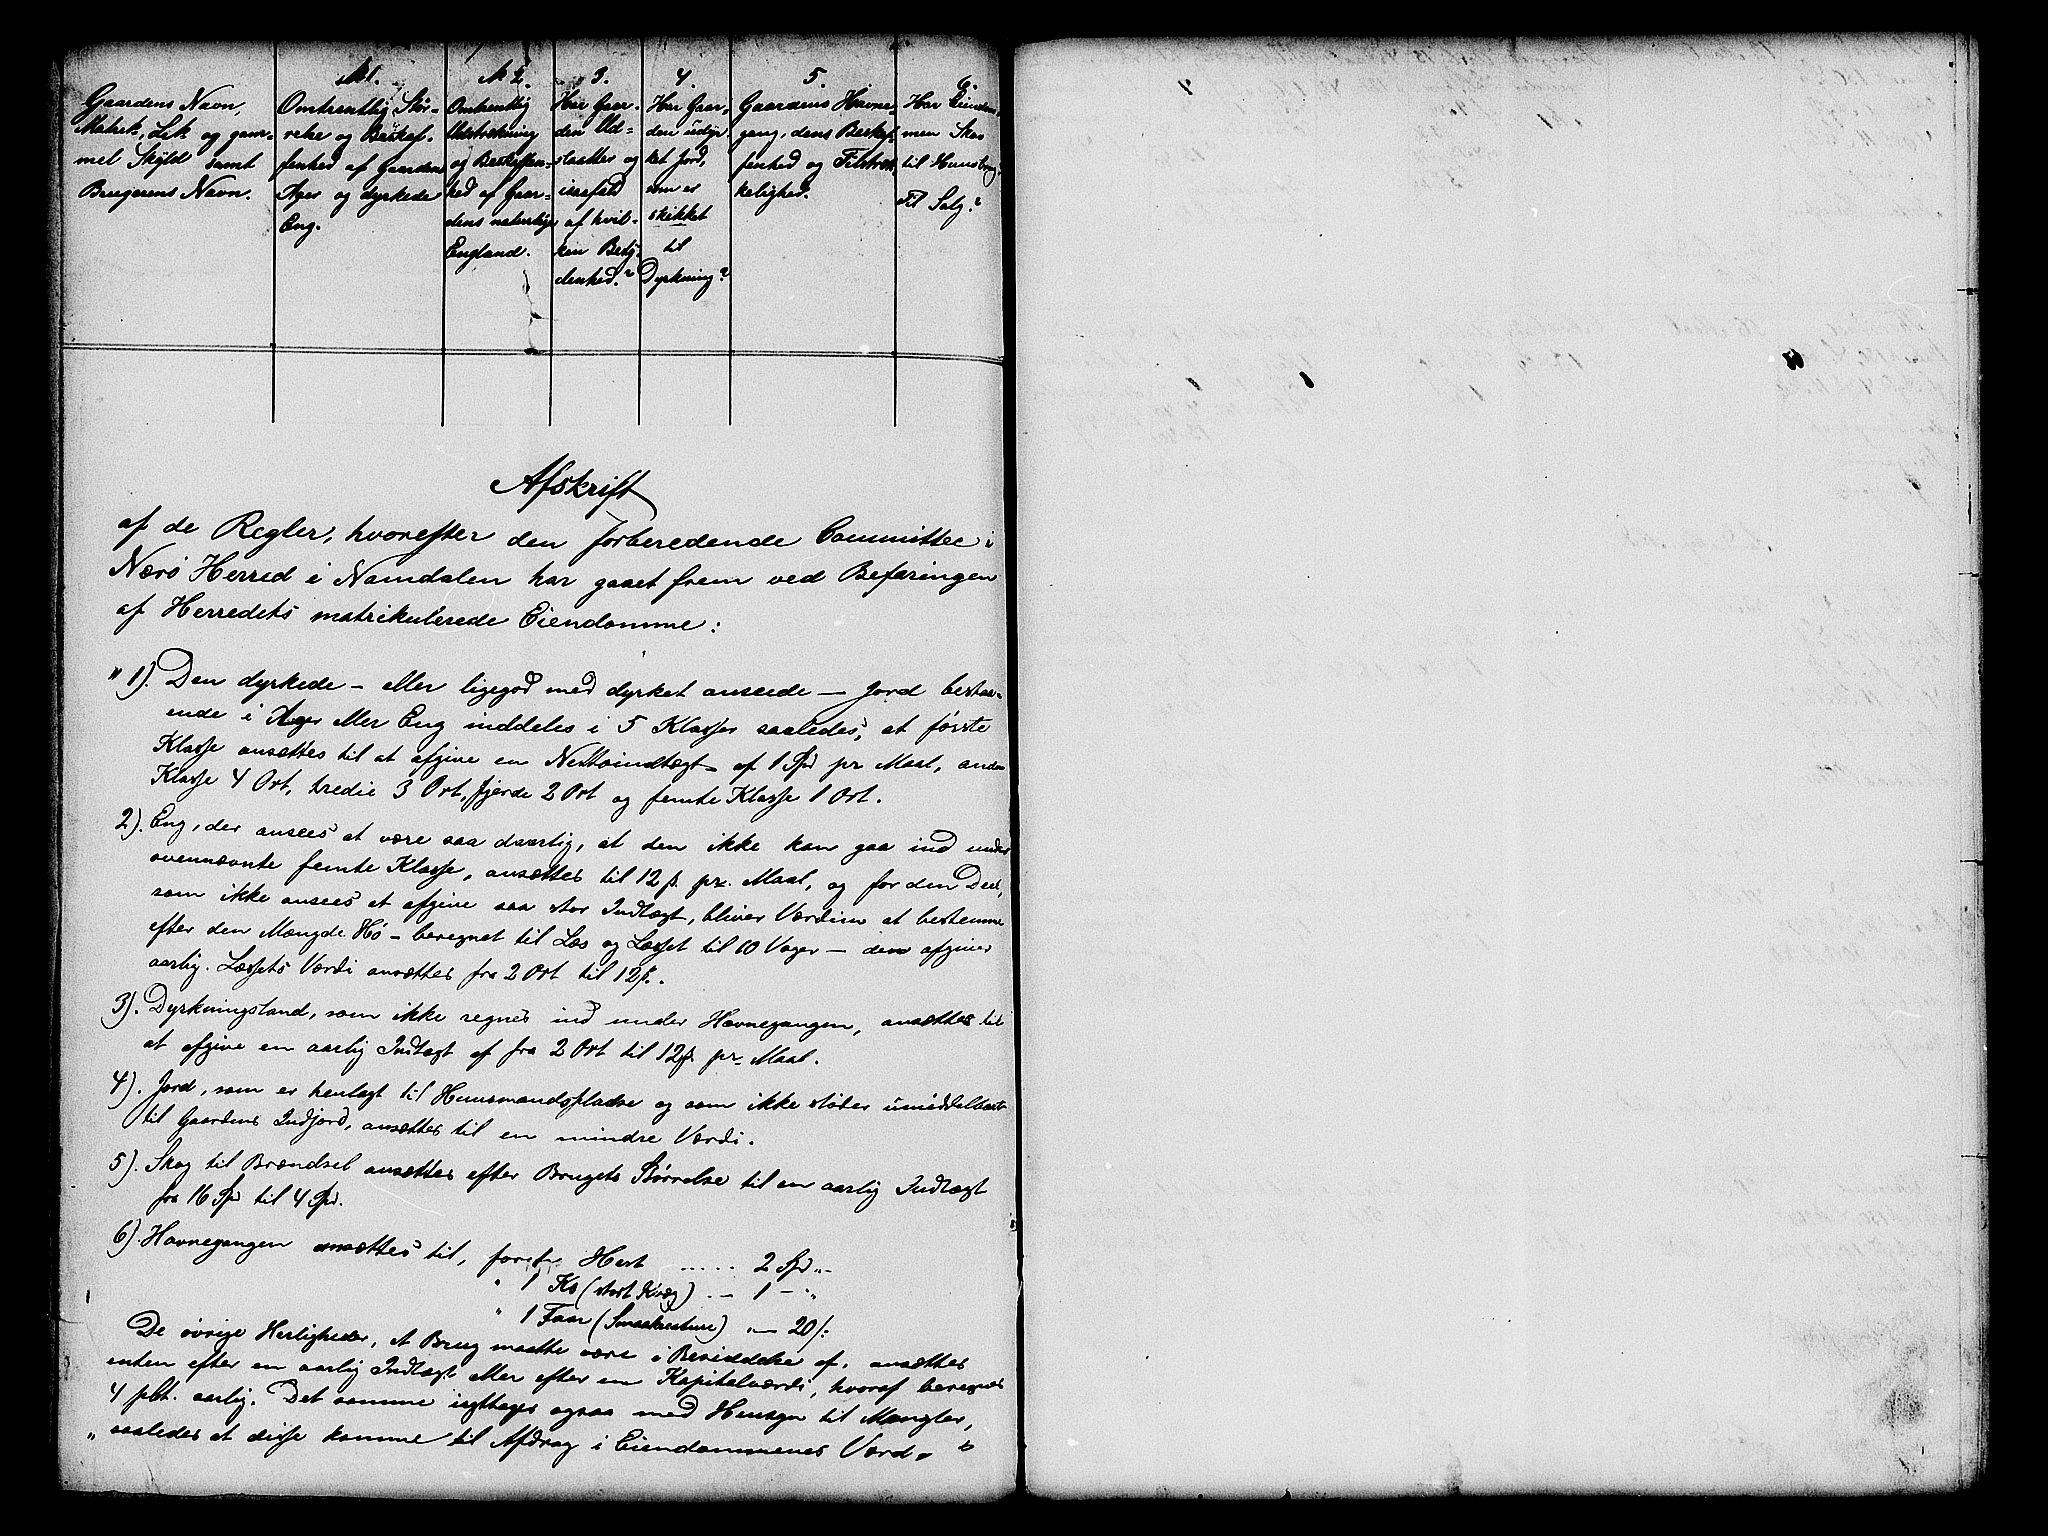 Gaardens Navn,
Matrik. Lit. og gam-
mel Skyld samt
Brugerens Navn.
№ 1.
Omtrentlig Stør-
relse og Beskaf-
fenhed af Gaardens
Ager og dyrkede
Eng.
№ 2.
Omtrentlig
Udstrekning
og Beskaffen-
hed af Gaar-
dens naturlige
England.
3.
Har Gaar-
den Ud-
slaatter og
isaafald
af hvil-
ken Bety-
denhed?
4.
Har Gaar-
den udyr-
ket Jord,
som er
skikket
til
Dyrkning?
5.
Gaardens Havne-
gang, dens Beskaf-
fenhed og Tilstræk-
kelighed.
6.
Har Eiendom-
men Skov
til Huusbrug?
Til Salg?
Afskrift
af de Regler, hvorefter den forberedende Committee i
Nærö Herred i Namdalen har gaaet frem ved Befaringen
af Herredets matrikulerede Eiendomme:
" 1). Den dyrkede - eller ligegod med dyrket ansede - Jord bestaa-
ende i Ager eller Eng inddeles i 5 Klasser saaledes, at første
Klasse ansættes til at afgive en Nettoindtægt af 1 Spd pr Maal, anden
Klasse 4 Ort, tredie 3 Ort, fjerde 2 Ort og femte Klasse 1 Ort.
2). Eng, der ansees at være saa daarlig, at den ikke kan gaa ind under
ovennævnte femte Klasse, ansættes til 12 ß. pr. Maal, og for den Deel,
som ikke ansees at afgive saa stor Indtægt, bliver Værdien at bestemme
efter den Mængde Hö - beregnet til Læs og Læsset til 10 Voger - den afgiver
aarlig. Læssets Værdi ansættes fra 2 Ort til 12 ß.
3). Dyrkningsland, som ikke regnes ind under Havnegangen, ansættes til
at afgive en aarlig Indtægt af fra 2 Ort til 12 ß. pr. Maal.
4). Jord, som er henlagt til Huusmandspladse og som ikke støder umiddelbart
til Gaardens Indjord, ansættes til en mindre Værdi.
5). Skog til Brændsel ansættes efter Brugets Størrelse til en aarlig Indtægt
fra 16 Spd til 4 Spd.
6). Havnegangen ansættes til, for Hest ...... 2 Spd „-
" 1 Ko (stort Kvæg) .. - 1 - „
" 1 Faar (Smaakreature) „ - 20 ß:
De øvrige Herligheder, et Brug maatte være i Besiddelse af, ansættes
enten efter en aarlig Indtægt eller efter en Kapitalværdi, hvoraf beregnes
4 pCt. aarlig. Det samme iagttages ogsaa med Hensyn til Mangler,
„ saaledes at disse komme til Afdrag i Eiendommenes Værd. "